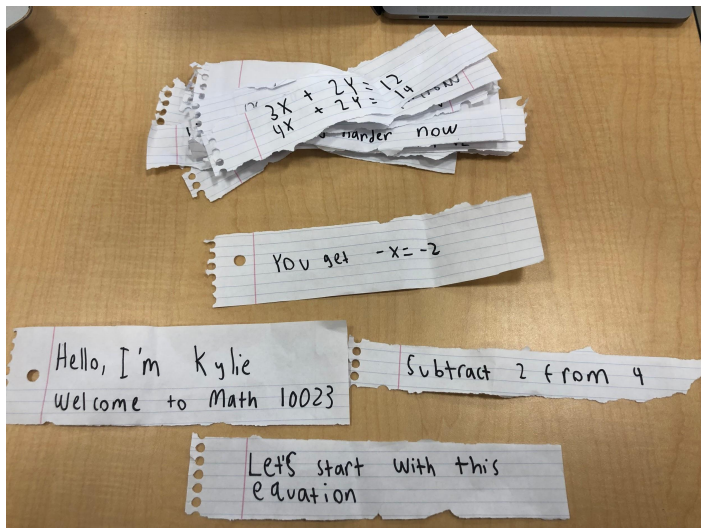 3X + 2Y = 12
4X + 2Y = 14
harder now
You get -x = -2
Hello, I'm Kylie
Welcome to Math 10023
Subtract 2 from 4
Let's start with this
equation